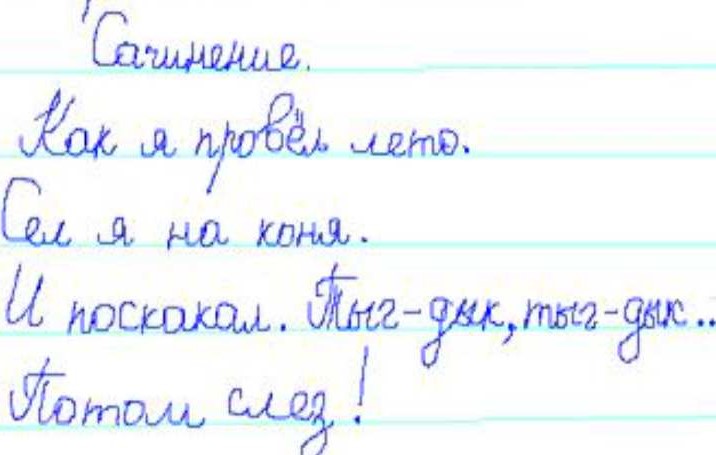 Сачинение.
Как я провёл лето.
Сел я на коня.
И поскакал. Тыг-дык, тыг-дык..
Потом слез!